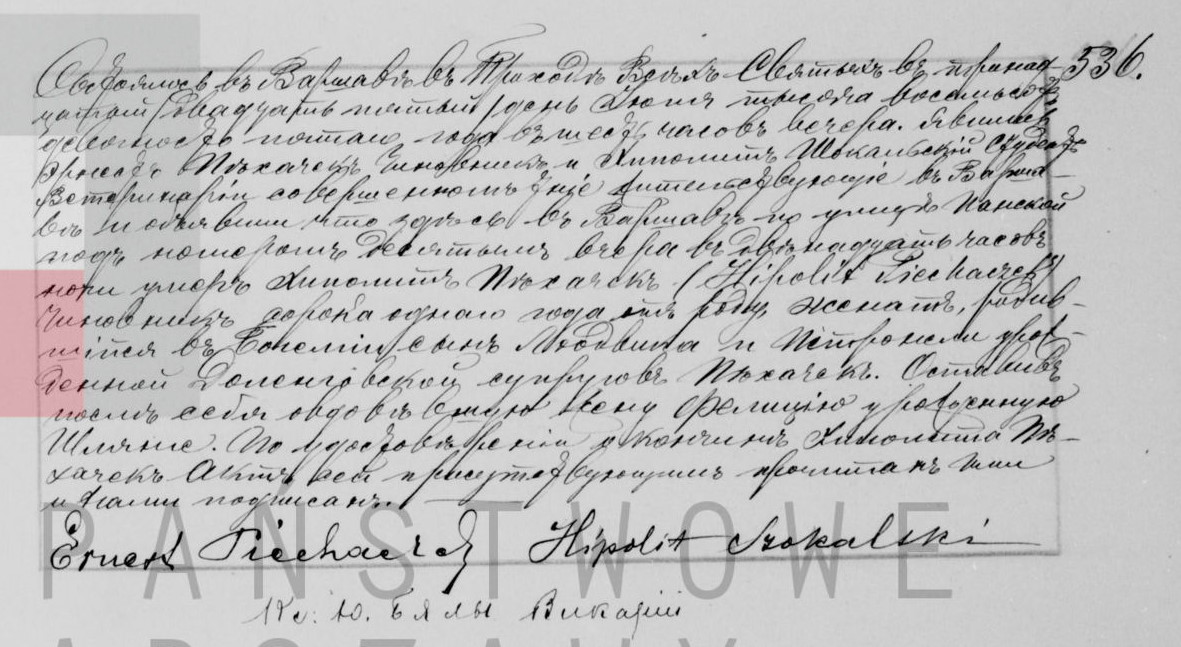 536.
Состоялось въ Варшавѣ въ Приходѣ Всѣхъ Святыхъ въ тринад-
цатый /двадцать пятый/ день Іюня тысяча восемьсотъ
девяносто пятаго года въ шесть часовъ вечера. Явились
Эрнестъ Пѣхачекъ чиновникъ и Хиполитъ Шокальскій Студентъ
Ветеринаріи совершеннолѣтніе жительствующіе въ Варша-
вѣ и объявили что здѣсь въ Варшавѣ по улицѣ Панской
подъ номеромъ десятымъ вчера въ двѣнадцать часовъ
ночи умеръ Хиполитъ Пѣхачекъ (Hipolit Piechaczek)
чиновникъ сорока однаго года отъ роду, женатъ, родив-
шійся въ сынъ Людвика и Петронели урож-
денной Доленговской супруговъ Пѣхачекъ. Оставивъ
послѣ себя овдовѣвшую жену Фелицію урожденную
По удостовѣреніи о кончинѣ Хиполита Пѣ-
хачекъ Актъ сей присутствующимъ прочитанъ ими
и Нами подписанъ.
Ernest Piechaczek Hipolit Szokalski
Кс: Ю. Бялы Викарій
PAŃSTWOWE